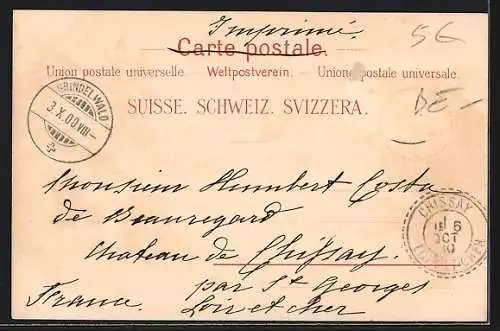 Imprimé.
Carte postale.
Union postale universelle. Weltpostverein. Unione postale universale.
SUISSE. SCHWEIZ. SVIZZERA.
56
DE -
GRINDELWALD
3.X.00 VIII-
Monsieur Humbert Costa
de Beauregard
Chateau de Chissay.
par St Georges
France. Loir et cher
CHISSAY
OCT
LOIR-ET-CHER